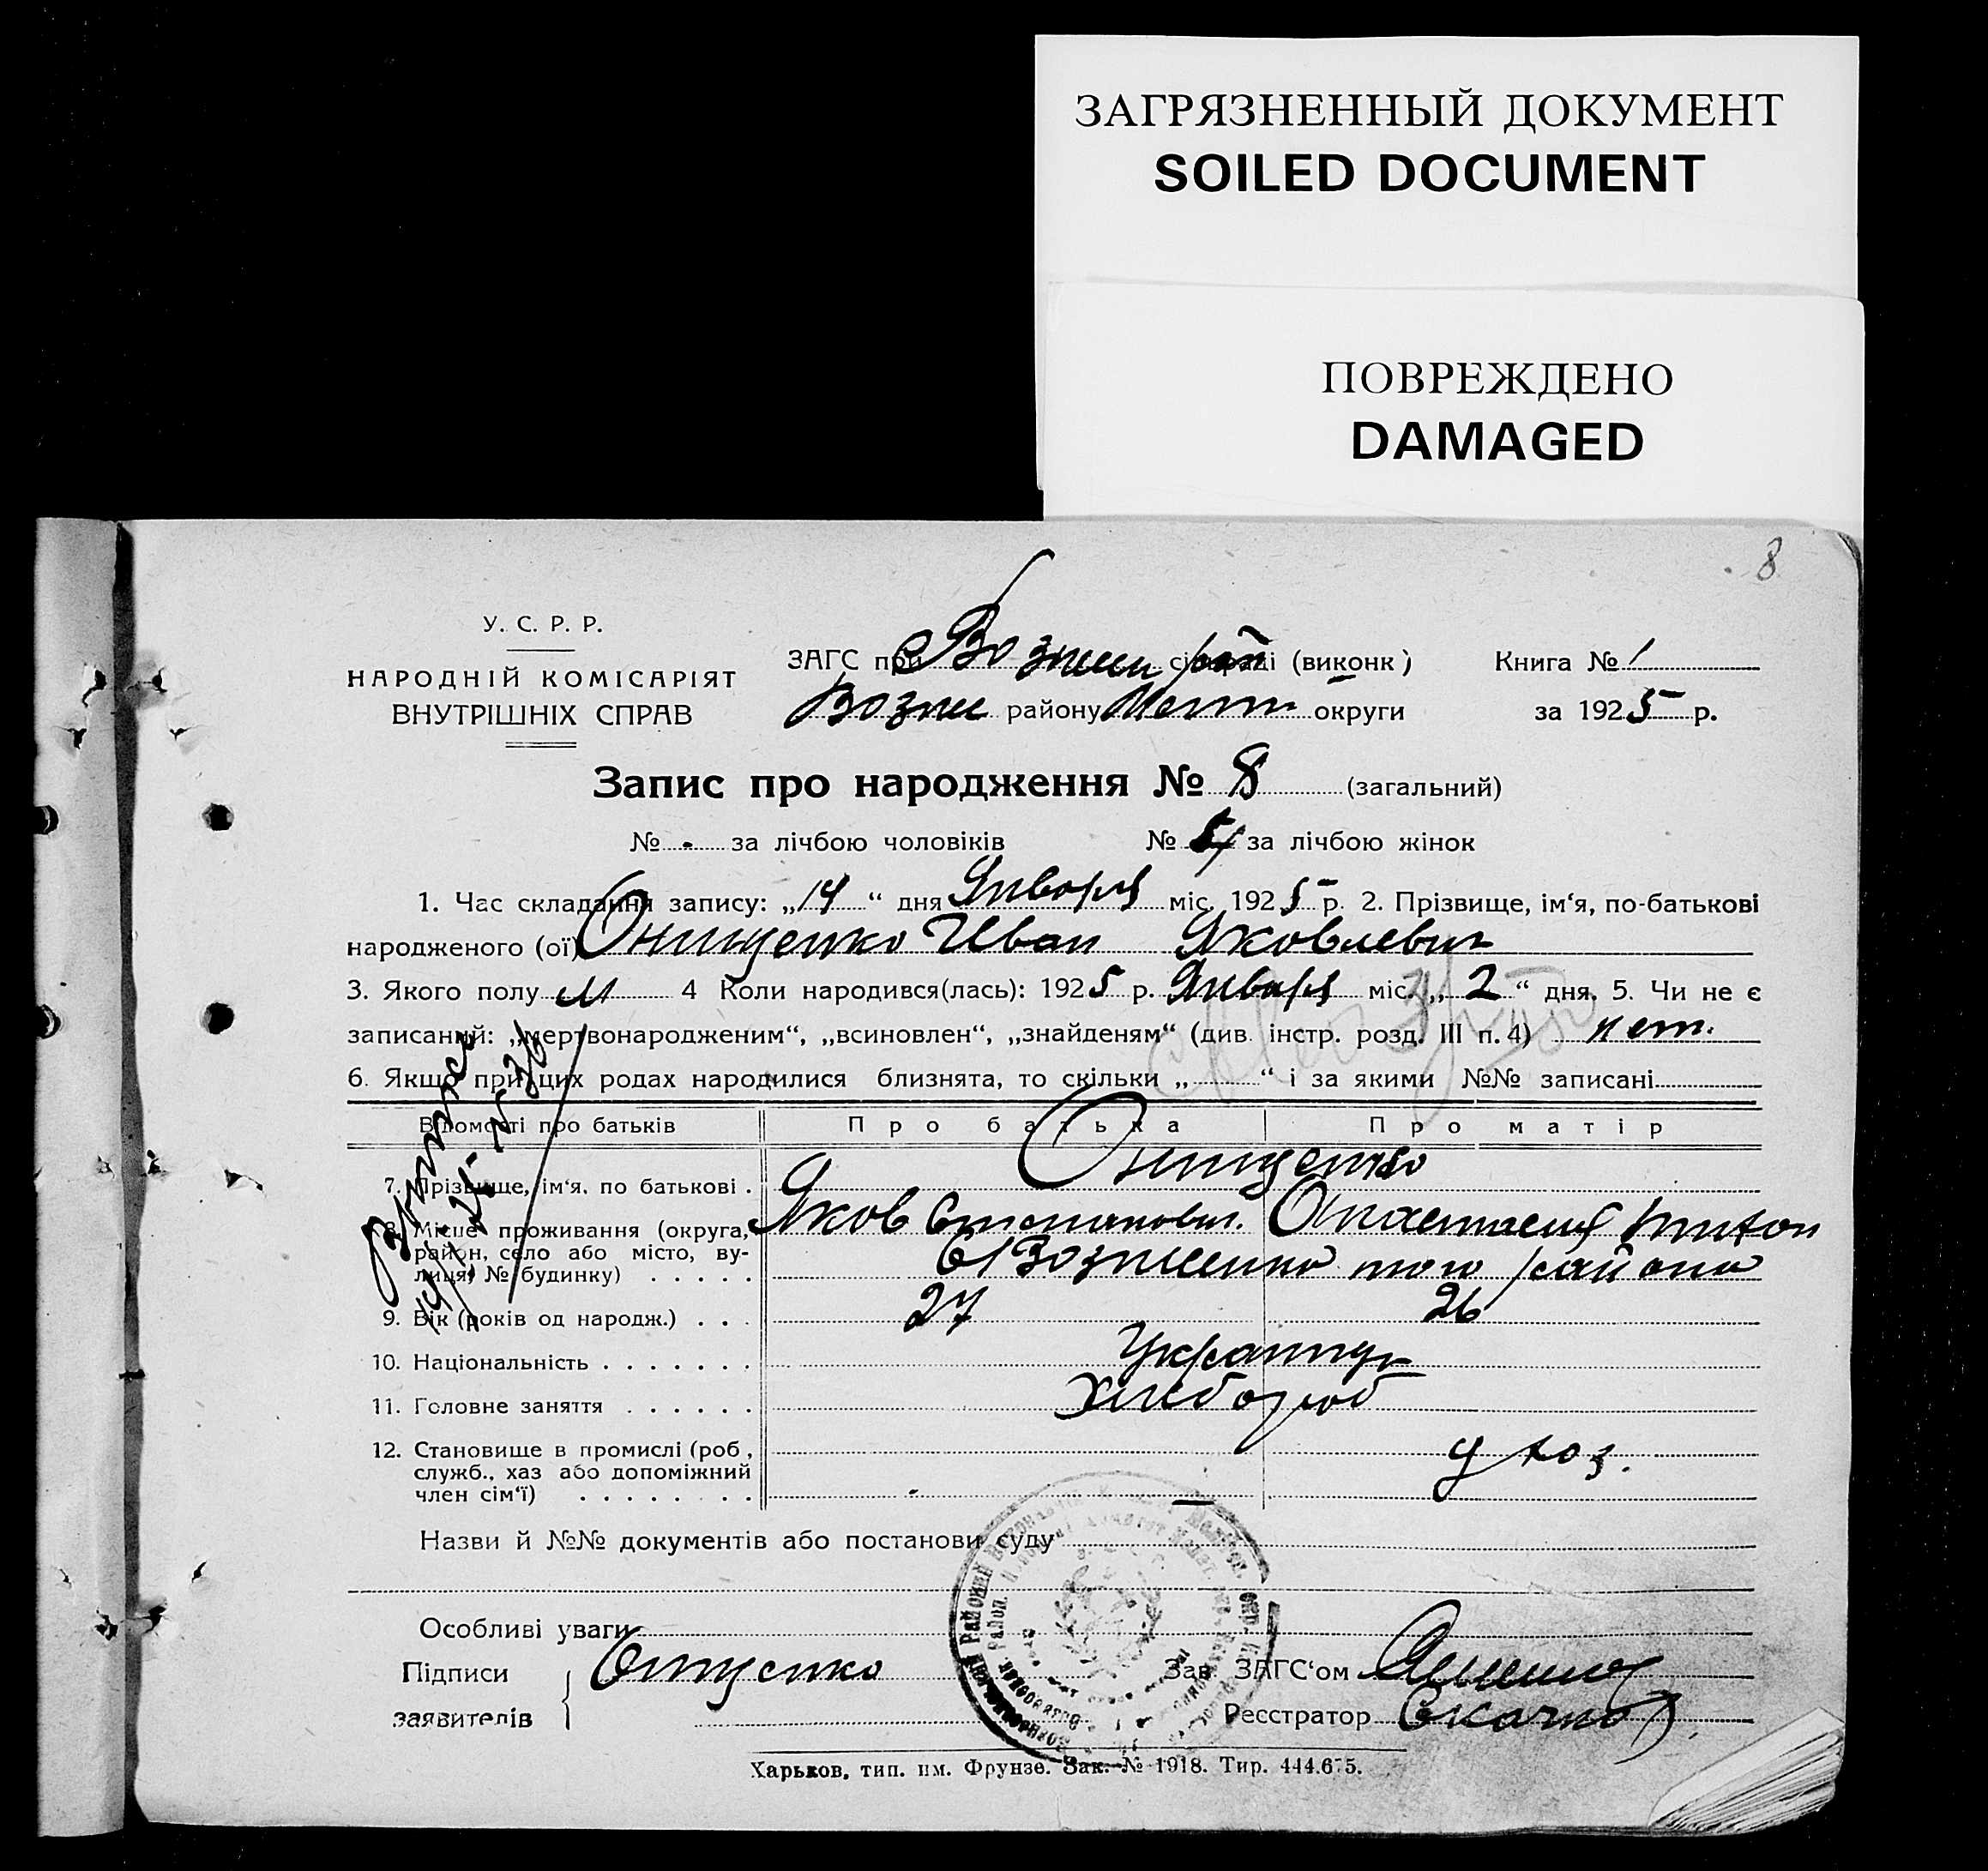 ЗАГРЯЗНЕННЫЙ ДОКУМЕНТ
SOILED DOCUMENT
ПОВРЕЖДЕНО
DAMAGED
8
У. С. Р. Р.
НАРОДНІЙ КОМІСАРІЯТ
ВНУТРІШНІХ СПРАВ
ЗАГС при рай (виконк)
району округи
Книга № 1
за 1925 р.
Запис про народження № 8 (загальний)
№ - за лічбою чоловіків № за лічбою жінок
1. Час складання запису: „14“ дня Января міс. 1925 р. 2. Прізвище, ім‘я, по-батькові
народженого (ої) Онищенко Иван Яковлевич
3. Якого полу М 4 Коли народився(лась): 1925 р. Января міс. „2“ дня. 5. Чи не є
записаний: „мертвонародженим“, „всиновлен“, „знайденям“ (див. інстр. розд. III п. 4) нет.
6. Якщо при цих родах народилися близнята, то скільки „ “ і за якими №№ записані
Відомості про батьків Про батька Про матір
Онищенко
7. Прізвище, ім‘я, по батькові . Яков Степанович. Анастасия
8. Місце проживання (округа, район, село або місто, вулиця, № будинку) того района
9. Вік (років од народж.) . . . 27 26
10. Національність . . . . . . .
11. Головне заняття . . . . . . Хлебороб
12. Становище в промислі (роб., служб., хаз або допоміжний член сім‘ї) . . . . . . . . хоз.
Назви й №№ документів або постанови суду
Особливі уваги
Підписи
заявителів
Онищенко
Зав. ЗАГС‘ом
Реєстратор
Харьков, тип. им. Фрунзе. Зак. № 1918. Тир. 444.675.